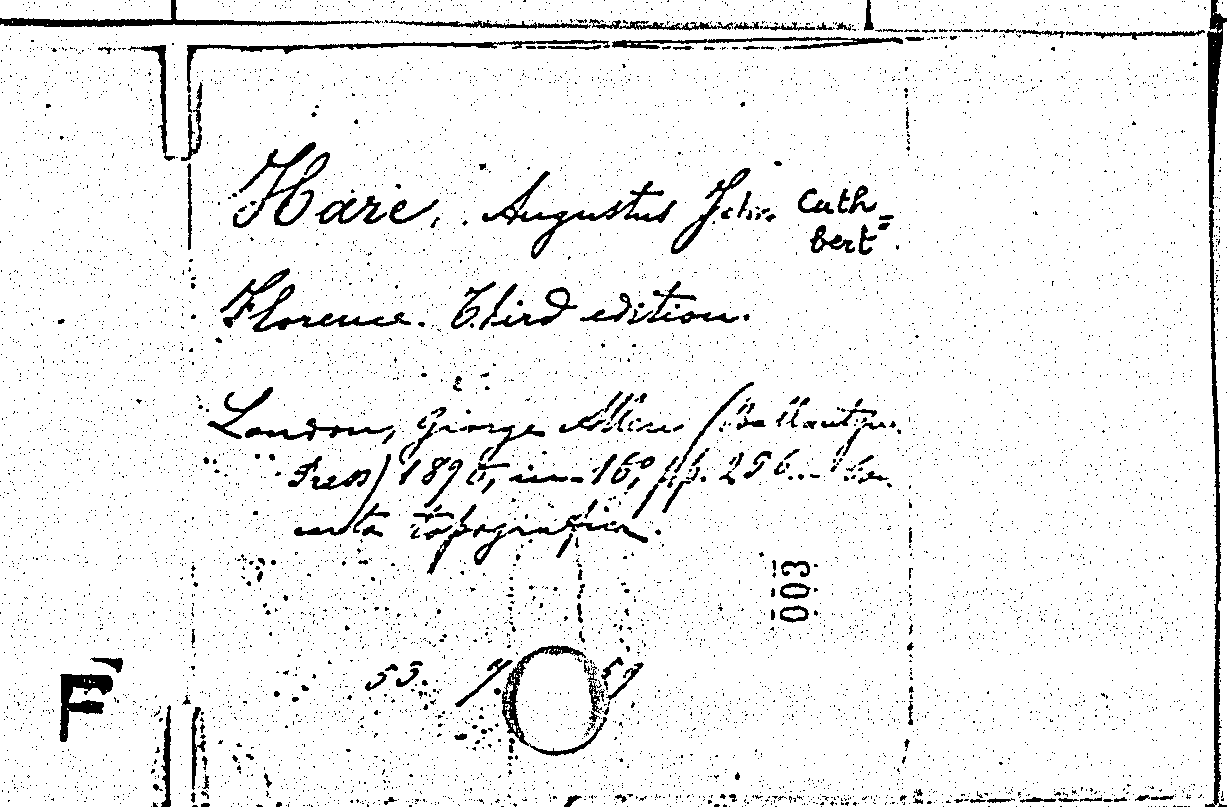 Hare, Augustus John Cuth=
bert.
Florence. Third edition.
London, George Allen (Ballantyne
Press) 1890, in-16°, pp. 256. con
carta topografica.
003
53. 7. 59
F